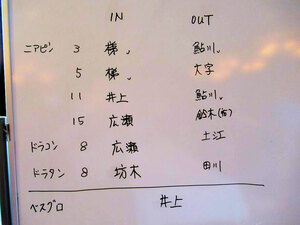 IN OUT
ニアピン 3 梯 鮎川
5 梯 大字
11 井上 鮎川
15 広瀬 鈴木(吉)
ドラコン 8 広瀬 土江
ドラタン 8 坊木 田川
ベスグロ 井上